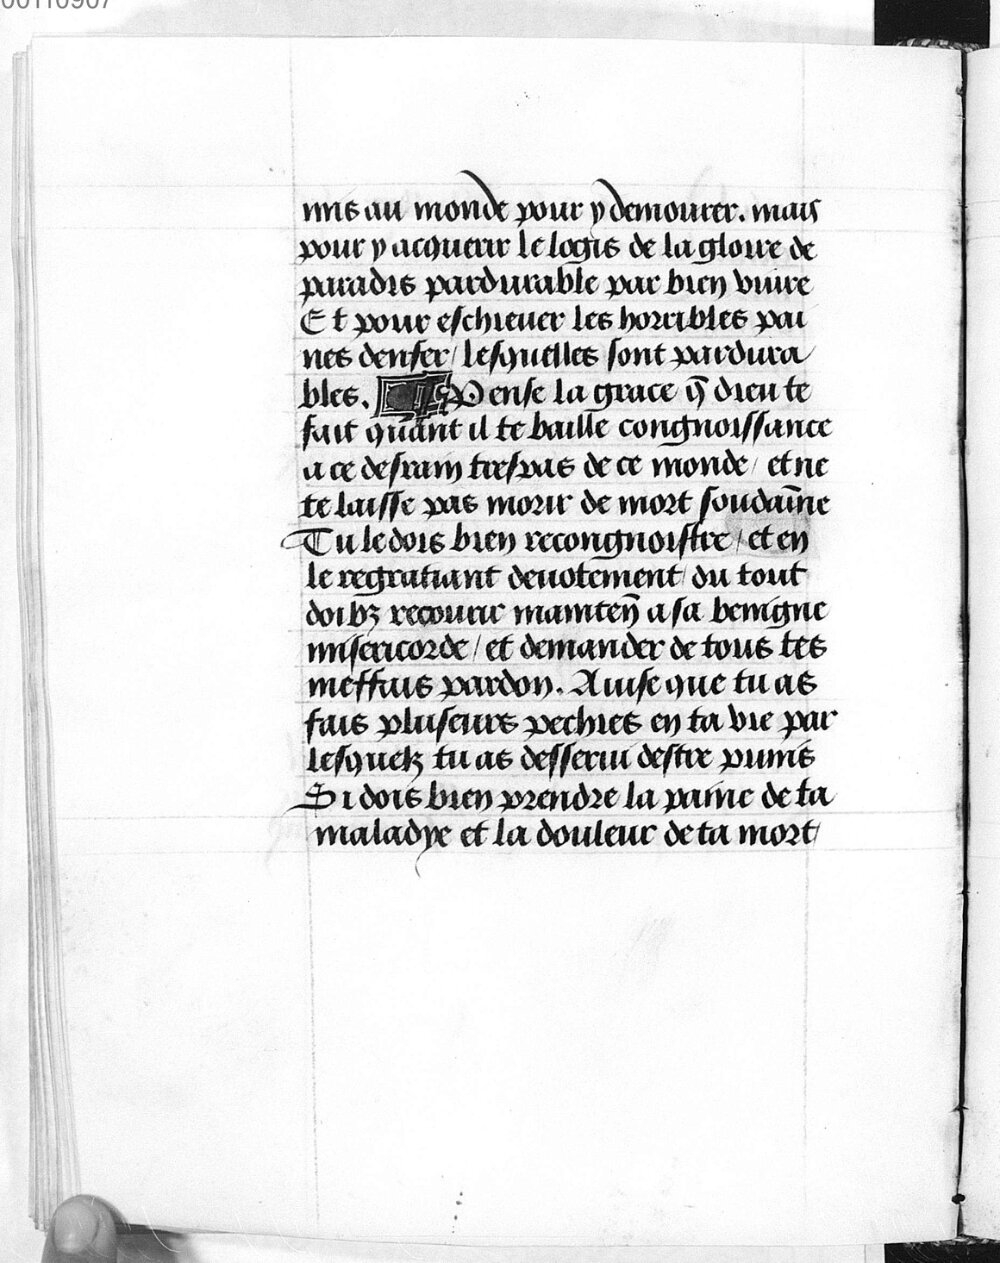 00110907
mis au monde pour y demourer. mais
pour y acquerir le logis de la gloire de
paradis pardurable par bien viure
Et pour eschieuer les horribles pai
nes denfer / lesquelles sont pardura
bles. ¶ Pense la grace q̄ dieu te
fait quant il te baille congnoissance
a ce derrain trespas de ce monde / et ne
te laisse pas morir de mort soudain̄e
Tu le dois bien recongnoistre / et en
le regratiant deuotement / du tout
doibz recourir mainten̄ a sa benigne
misericorde / et demander de tous tes
meffais pardon. Auise que tu as
fais pluseurs pechies en ta vie par
lesquelz tu as desserui destre punis
Si dois bien prendre la paine de ta
maladye et la douleur de ta mort /